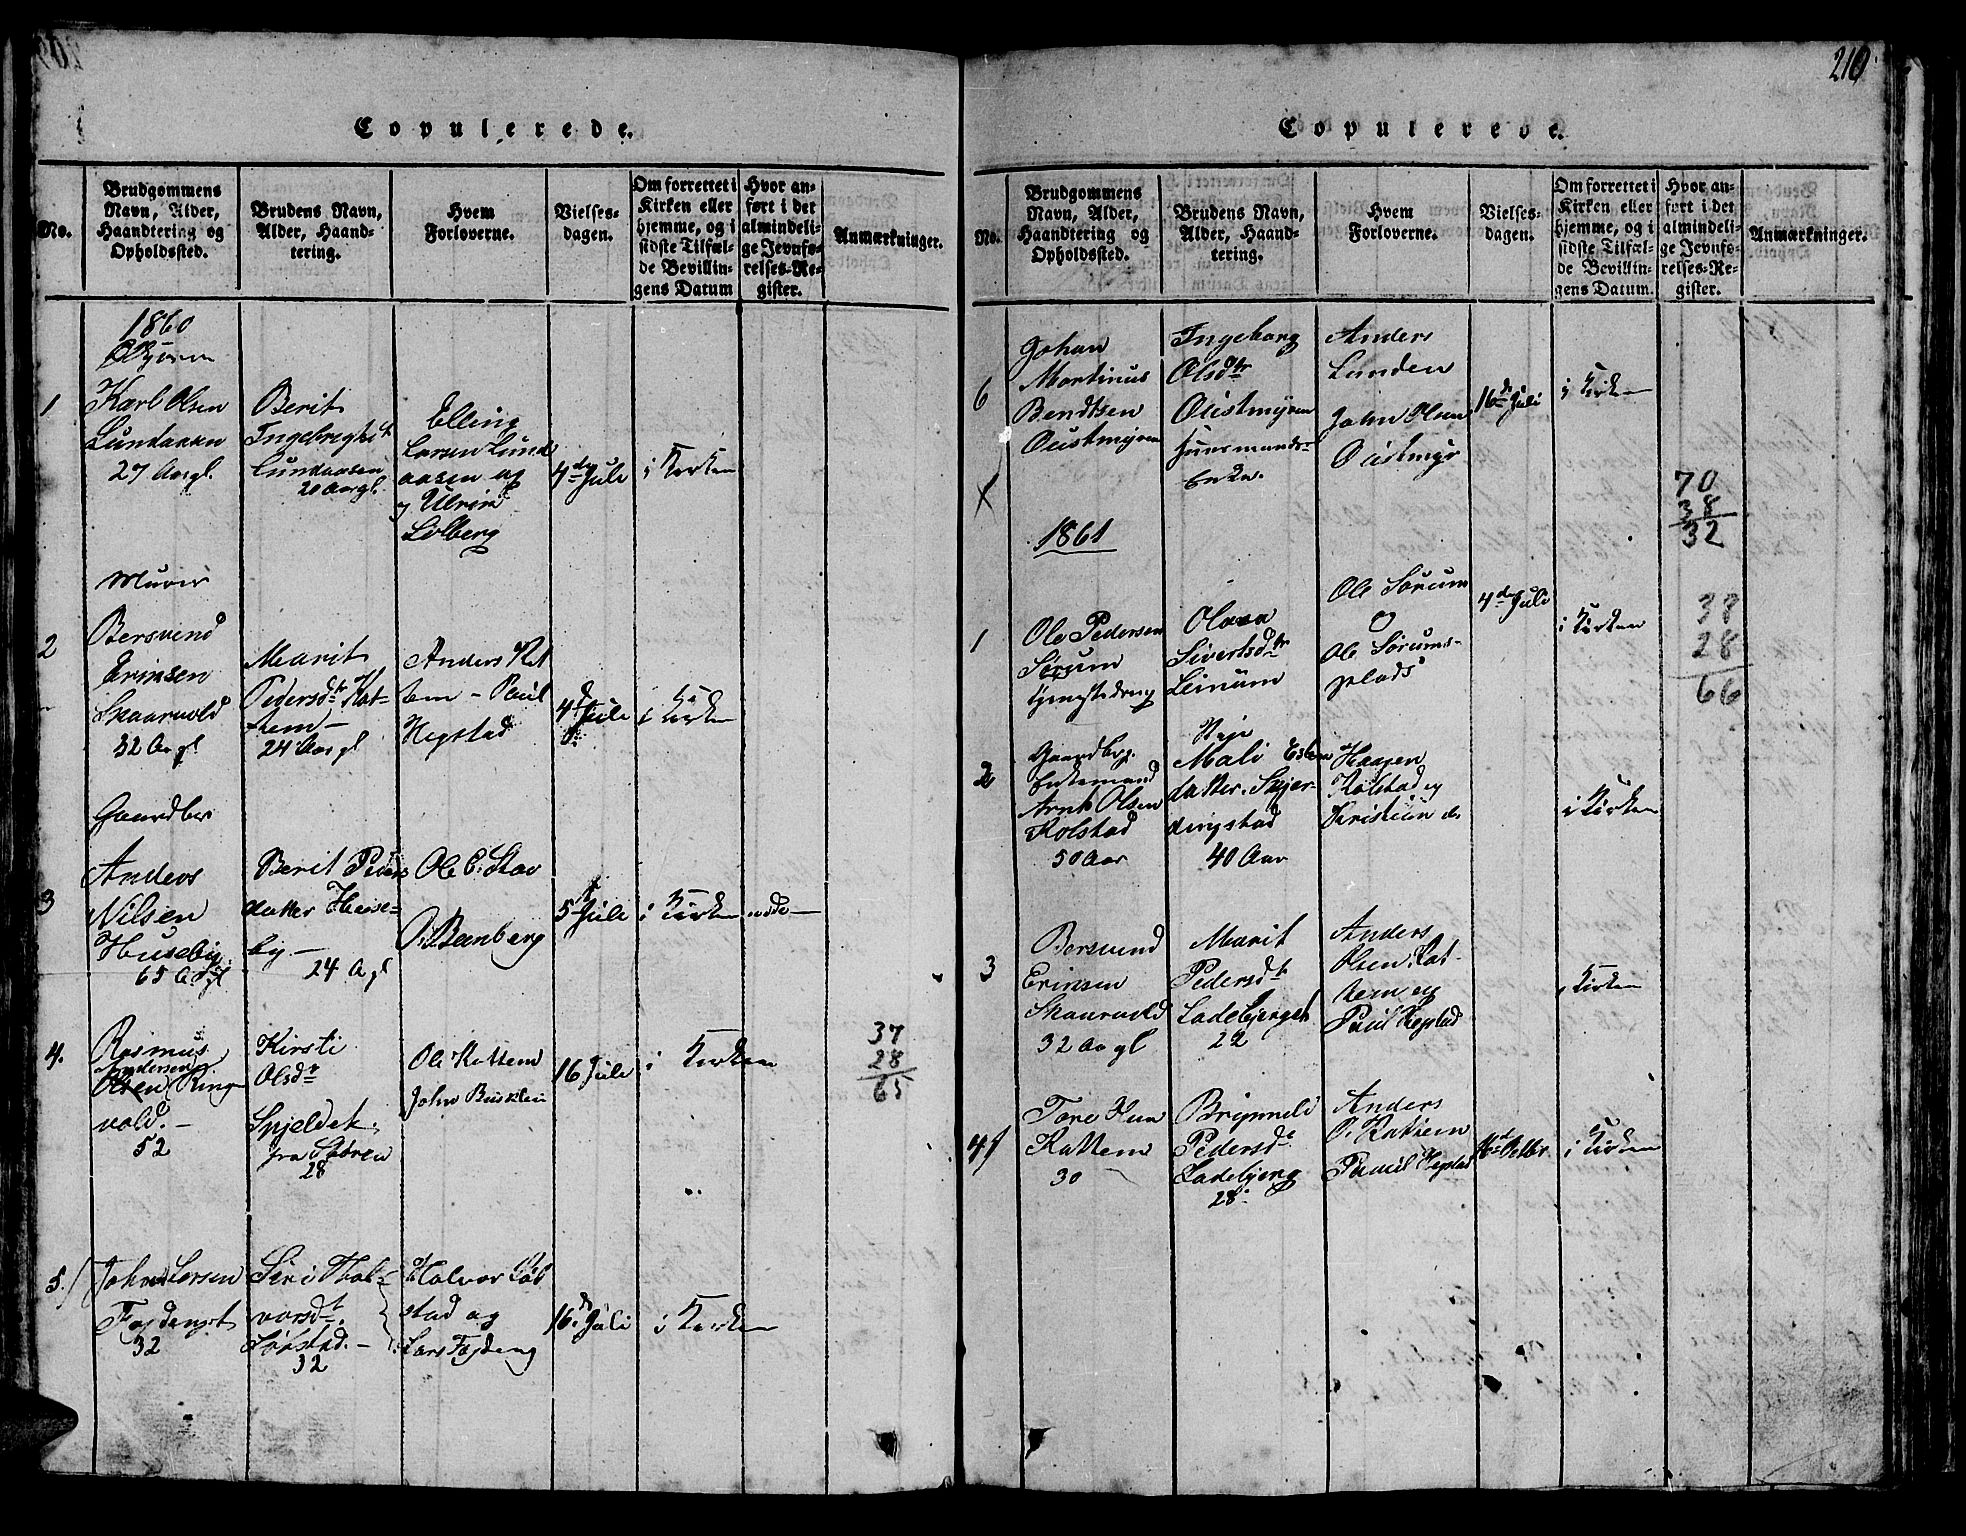 Copulerede.
No.
Brudgommens
Navn, Alder,
Haandtering og
Opholdssted.
Brudens Navn,
Alder, Haand-
tering.
Hvem
Forloverne.
Vielses-
dagen.
Om forrettet i
Kirken eller
hjemme, og i
sidste Tilfæl-
de Bevillin-
gens Datum
Hvor an-
ført i det
almindeli-
ge Jevnfø-
relses-Re-
gister.
Anmærkninger.
1860
1
Karl Olsen
Lundaasen
27 Aar gl.
Berit
Lundaasen
20 Aar gl.
Elling
Larsen Lund
aasen og
Solberg
4de Juli
i Kirken
Murer
2
Bersvend
Erinsen
Skaarvold
32 Aar gl
Marit
Pedersdtr Kat-
tem -
24 Aar gl
Anders Kat
tem - Paul
Hegstad
4d Juli
i Kirken
Gaardbr
3
Anders
Nilsen
Huseby
65 A gl
Berit Peders
datter Huse-
by -
24 A gl
Ole C. Stav
5d Juli
i Kirken
4.
Rasmus
Andersen
Olsen Ring
vold. -
52
Kirsti
Olsdr
fra
28
Ole Kattem
John Busklei
16 Juli
i Kirken
37
28
65
5.
John Larsen
32
Siri Hal-
vorsdtr
32
Halvor
stad og
16d Juli
i Kirken
210
Copulerede.
No.
Brudgommens
Navn, Alder,
Haandtering og
Opholdssted.
Brudens Navn,
Alder, Haand-
tering.
Hvem
Forloverne.
Vielses-
dagen.
Om forrettet i
Kirken eller
hjemme, og i
sidste Tilfæl-
de Bevillin-
gens Datum.
Hvor an-
ført i det
almindeli-
ge Jevnfø-
relses-Re-
gister.
Anmærkninger.
6
Johan
Martinus
Bendtsen
Oustmyren
Ingeborg
Olsdtr
Oustmyren
Huusmands-
Enke.
Anders
Lunden
John Olsen
Oustmyr
16de Juli
i Kirken
X
70
38
32
1861
1
Ole Pedersen
Sørum
Olava
Sivertsdtr
Leinum
Ole Sørum
og
Ole Sørums-
plads
4de Juli
i Kirken
38
28
66
2
Gaardbr.
Enkemand
Arnt Olsen
Kolstad
50 Aar
Pige
Mali
datter
dingstad
40 Aar
Haagen
Kolstad og
Kristian do
i Kirken
3
Bersvend
Erinsen
Skaarvold
32 Aar gl
Marit
Pedersdtr
Ladebjerget
22
Anders
Olsen Kat-
tem og
Paul Hegstad
i Kirken
4
Kattem
30
Pedersdtr
Ladebjerg
28
Anders
O. Kattem
Paul Hegstad
16de Octbr.
i Kirken